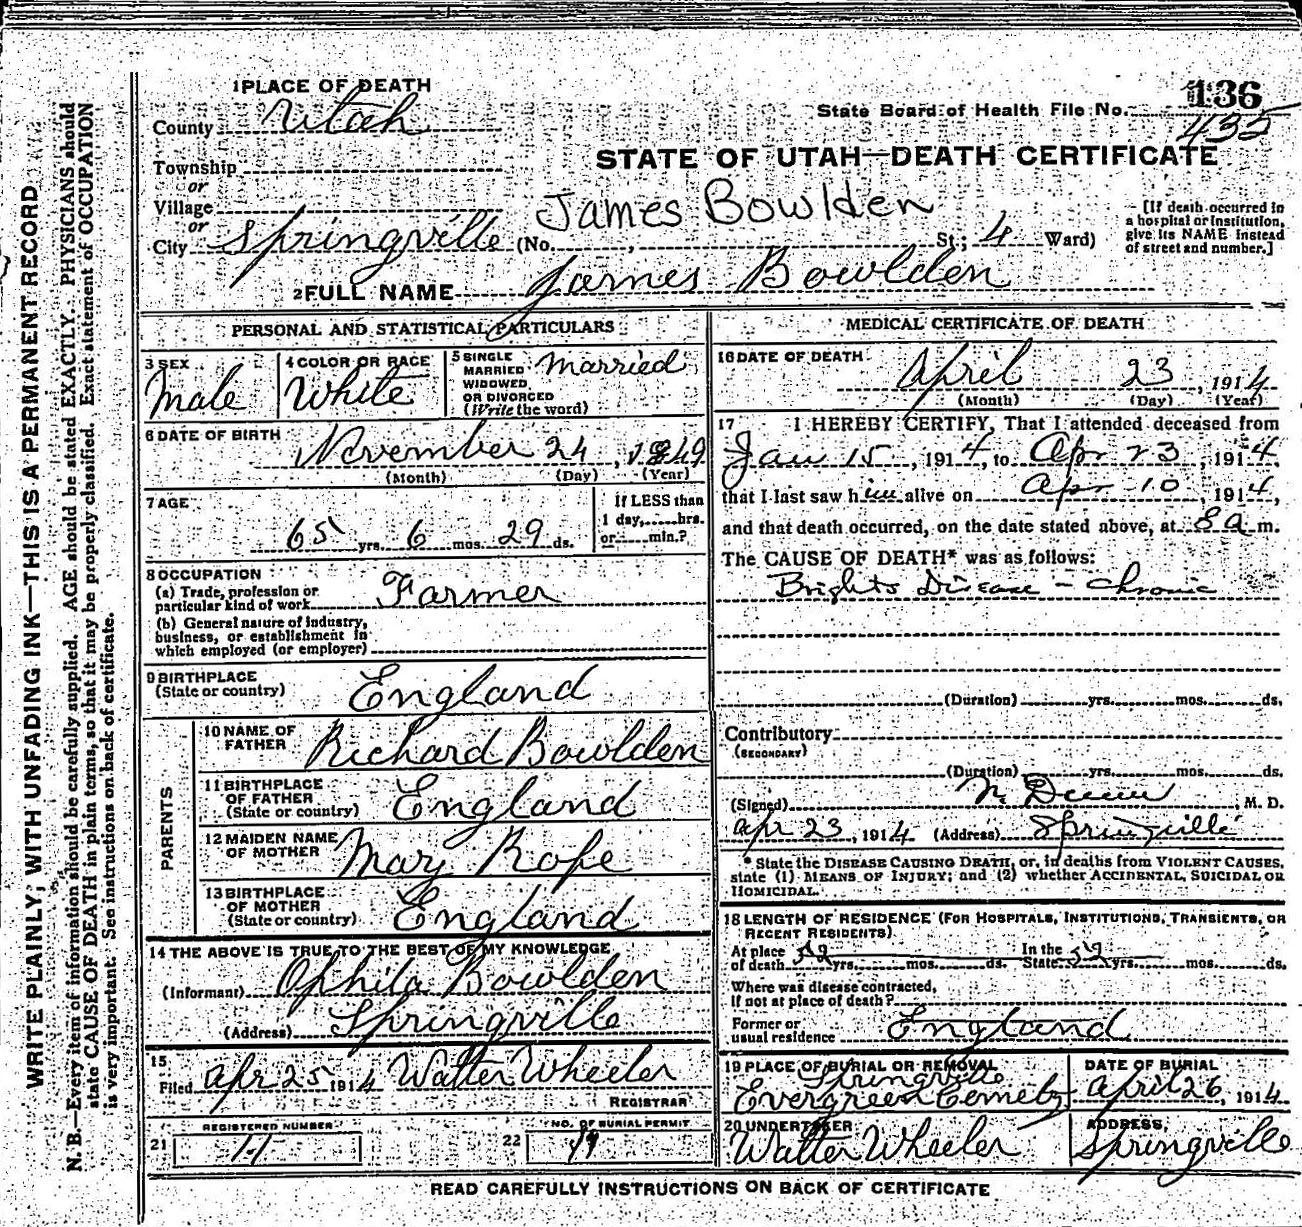 WRITE PLAINLY, WITH UNFADING INK—THIS IS A PERMANENT RECORD
N. B.—Every item of information should be carefully supplied. AGE should be stated EXACTLY. PHYSICIANS should
state CAUSE OF DEATH in plain terms, so that it may be properly classified. Exact statement of OCCUPATION
is very important. See instructions on back of certificate.
1 PLACE OF DEATH
County Utah
Township
or
Village
or
City Springville (No. , St.; 4 Ward)
State Board of Health File No. 136
435
STATE OF UTAH—DEATH CERTIFICATE
James Bowlden
[If death occurred in
a hospital or institution,
give its NAME instead
of street and number.]
2 FULL NAME James Bowlden
PERSONAL AND STATISTICAL PARTICULARS
3 SEX
Male
4 COLOR OR RACE
White
5 SINGLE
MARRIED
WIDOWED
OR DIVORCED
(Write the word)
Married
6 DATE OF BIRTH
November 24, 1849
(Month) (Day) (Year)
7 AGE
65 yrs. 6 mos. 29 ds.
If LESS than
1 day, hrs.
or min.?
8 OCCUPATION
(a) Trade, profession or
particular kind of work Farmer
(b) General nature of industry,
business, or establishment in
which employed (or employer)
9 BIRTHPLACE
(State or country) England
PARENTS
10 NAME OF
FATHER Richard Bowlden
11 BIRTHPLACE
OF FATHER
(State or country) England
12 MAIDEN NAME
OF MOTHER Mary Rope
13 BIRTHPLACE
OF MOTHER
(State or country) England
14 THE ABOVE IS TRUE TO THE BEST OF MY KNOWLEDGE
(Informant) Ophila Bowlden
(Address) Springville
15
Filed Apr 25, 1914 Walter Wheeler
REGISTRAR
REGISTERED NUMBER
21 11
NO. OF BURIAL PERMIT
22
MEDICAL CERTIFICATE OF DEATH
16 DATE OF DEATH
April 23, 1914
(Month) (Day) (Year)
17 I HEREBY CERTIFY, That I attended deceased from
Jan 15, 1914, to Apr 23, 1914,
that I last saw him alive on Apr 10, 1914,
and that death occurred, on the date stated above, at 8 a m.
The CAUSE OF DEATH* was as follows:
Brights Disease - Chronic
(Duration) yrs. mos. ds.
Contributory
(SECONDARY)
(Duration) yrs. mos. ds.
(Signed) , M. D.
Apr 23, 1914 (Address) Springville
* State the DISEASE CAUSING DEATH, or, in deaths from VIOLENT CAUSES,
state (1) MEANS OF INJURY; and (2) whether ACCIDENTAL, SUICIDAL OR
HOMICIDAL.
18 LENGTH OF RESIDENCE (FOR HOSPITALS, INSTITUTIONS, TRANSIENTS, OR
RECENT RESIDENTS)
At place In the
of death 52 yrs. mos. ds. State 52 yrs. mos. ds.
Where was disease contracted,
if not at place of death?
Former or
usual residence England
19 PLACE OF BURIAL OR REMOVAL
Springville
Evergreen Cemety
DATE OF BURIAL
April 26, 1914
20 UNDERTAKER
Walter Wheeler
ADDRESS
Springville
READ CAREFULLY INSTRUCTIONS ON BACK OF CERTIFICATE